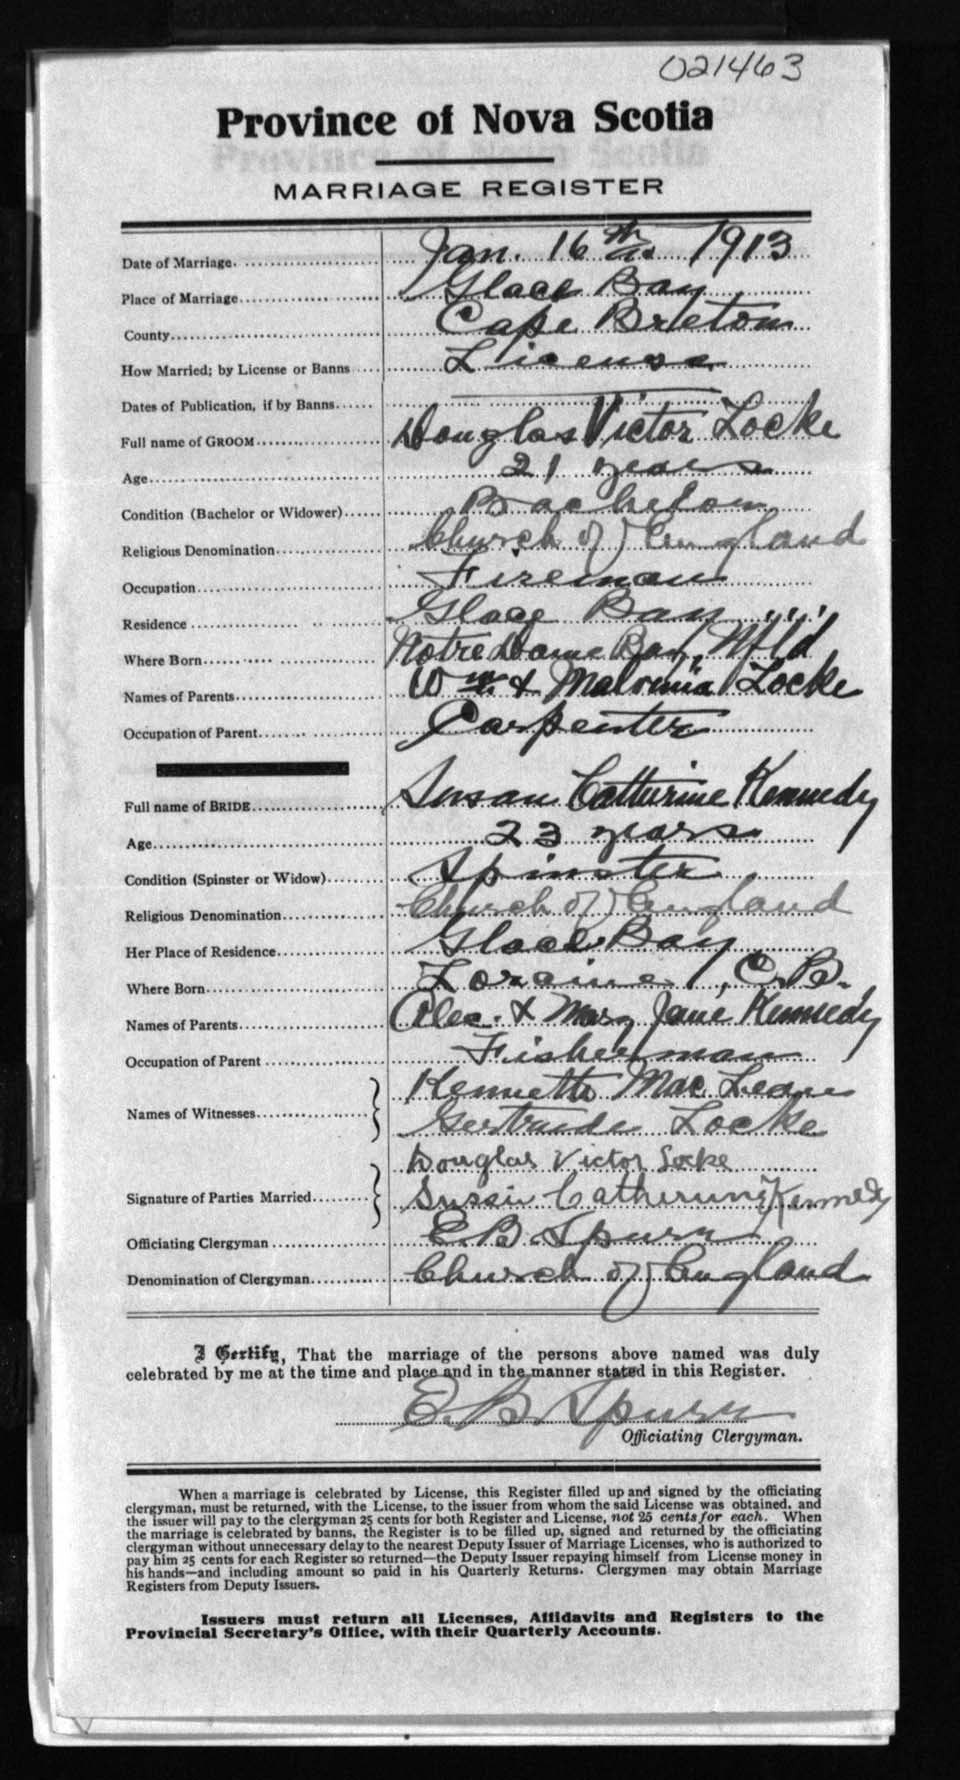 021463
Province of Nova Scotia
MARRIAGE REGISTER
Date of Marriage. Jan. 16th. 1913
Place of Marriage Glace Bay
County Cape Breton
How Married; by License or Banns License
Dates of Publication, if by Banns
Full name of GROOM Douglas Victor Locke
Age 21 years
Condition (Bachelor or Widower) Bachelor
Religious Denomination Church of England
Occupation Fireman
Residence Glace Bay
Where Born Notre Dame Bay, Nfld
Names of Parents Wm. & Malvenia Locke
Occupation of Parent Carpenter
Full name of BRIDE Susan Catherine Kennedy
Age 23 years
Condition (Spinster or Widow) Spinster
Religious Denomination Church of England
Her Place of Residence Glace Bay
Where Born Loraine, C.B.
Names of Parents Alec. & Mary Jane Kennedy
Occupation of Parent Fisherman
Kenneth Mac Lean
Names of Witnesses
Gertrude Locke
Douglas Victor Locke
Signature of Parties Married Sussie Catherine Kennedy
Officiating Clergyman E. B. Spurr
Denomination of Clergyman Church of England
I Certify, That the marriage of the persons above named was duly
celebrated by me at the time and place and in the manner stated in this Register.
E. B. Spurr
Officiating Clergyman.
When a marriage is celebrated by License, this Register filled up and signed by the officiating
clergyman, must be returned, with the License, to the issuer from whom the said License was obtained, and
the issuer will pay to the clergyman 25 cents for both Register and License, not 25 cents for each. When
the marriage is celebrated by banns, the Register is to be filled up, signed and returned by the officiating
clergyman without unnecessary delay to the nearest Deputy Issuer of Marriage Licenses, who is authorized to
pay him 25 cents for each Register so returned—the Deputy Issuer repaying himself from License money in
his hands—and including amount so paid in his Quarterly Returns. Clergymen may obtain Marriage
Registers from Deputy Issuers.
Issuers must return all Licenses, Affidavits and Registers to the
Provincial Secretary's Office, with their Quarterly Accounts.